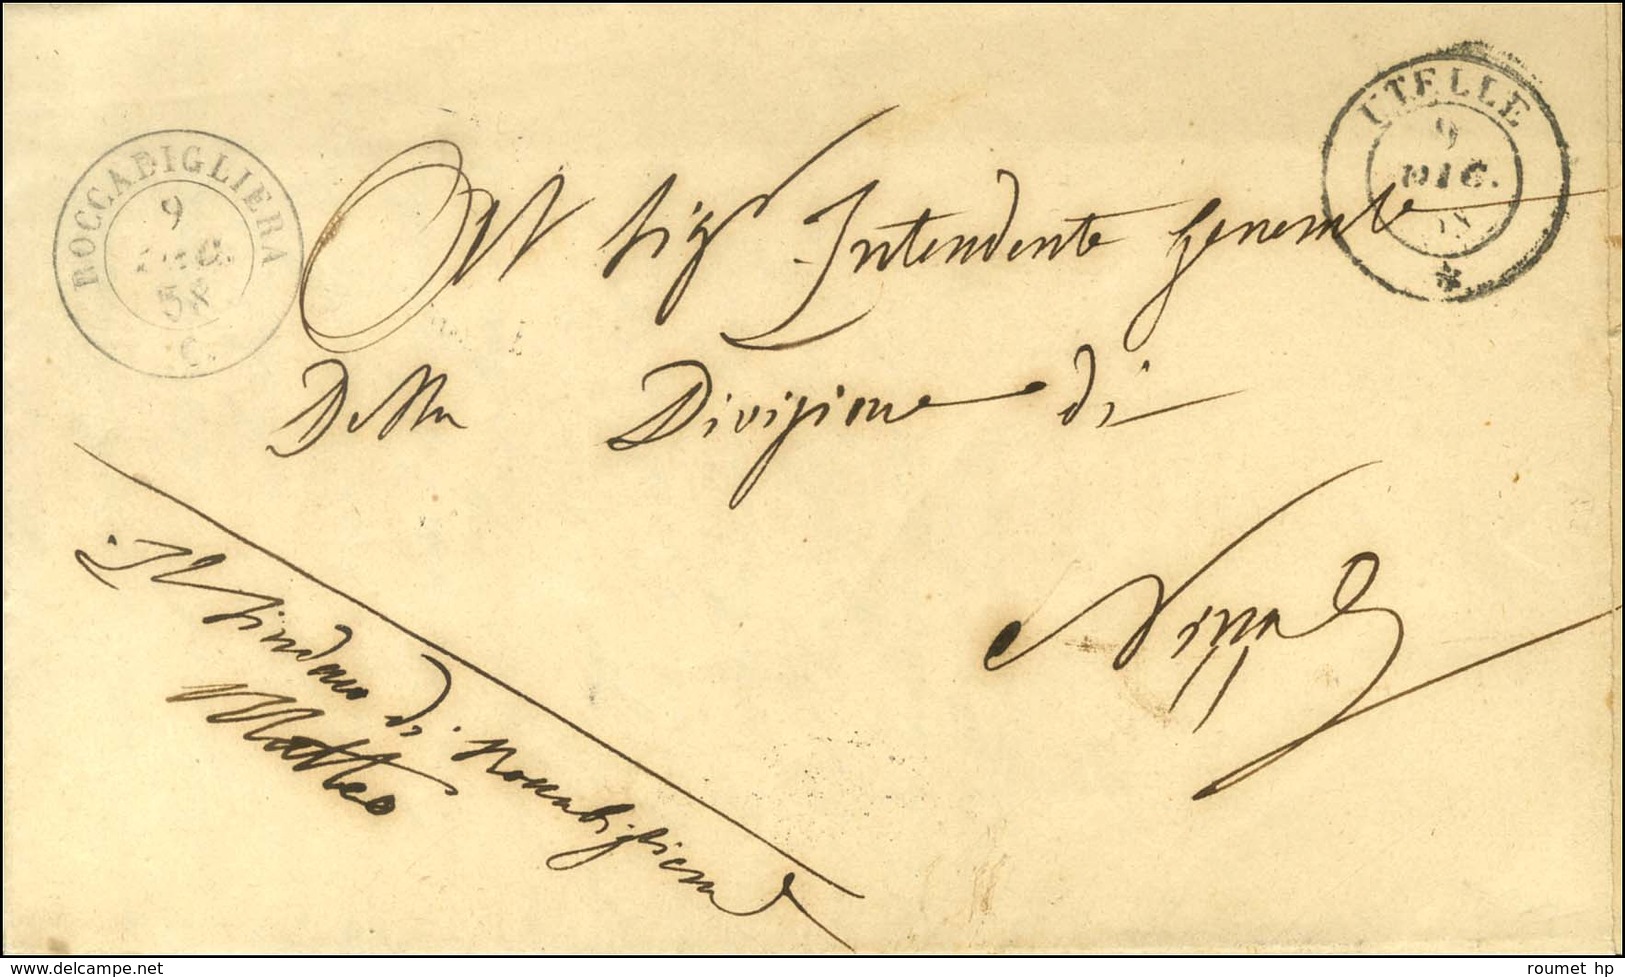 ROCCABIGLIERA
9
DIC.
58
C.
UTELLE
9
DIC.
Al Sig.r Intendente Generale
Della Divisione di
Nizza
Il Sindaco di Roccabigliera
Matteo
delcampe.net
roumet hp